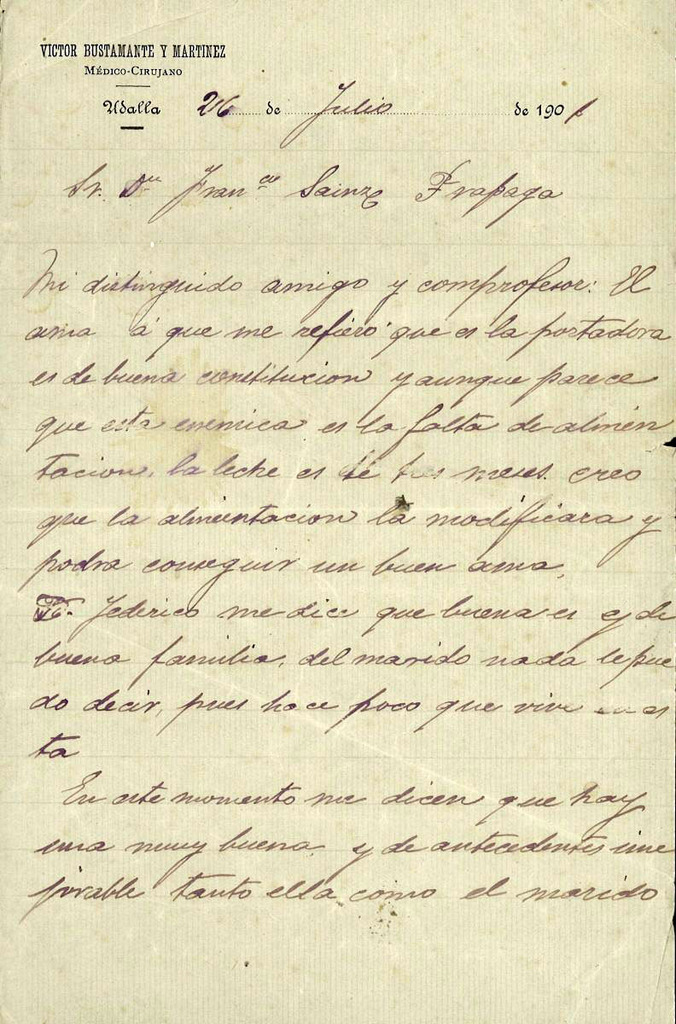 VICTOR BUSTAMANTE Y MARTINEZ
MÉDICO-CIRUJANO
Udalla 26 de Julio de 1901
Sr. Dn Franco Sainz Trapaga
Mi distinguido amigo y comprofesor: El
ama á que me refiero que es la portadora
es de buena constitucion y aunque parece
que esta enemica es la falta de alimen
tacion, la leche es de tres meses. creo
que la alimentacion la modificara y
podra conseguir un buen ama.
Federico me dice que buena es y de
buena familia, del marido nada le pue
do decir, pues hace poco que vive en es
ta
En este momento me dicen que hay
una muy buena y de antecedentes inme
jorable tanto ella como el marido